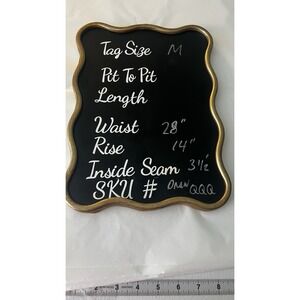 Tag Size M
Pit To Pit
Length
Waist 28"
Rise 14"
Inside Seam 3½"
SKU # QQQ
1 2 3 4 5 6 7 8